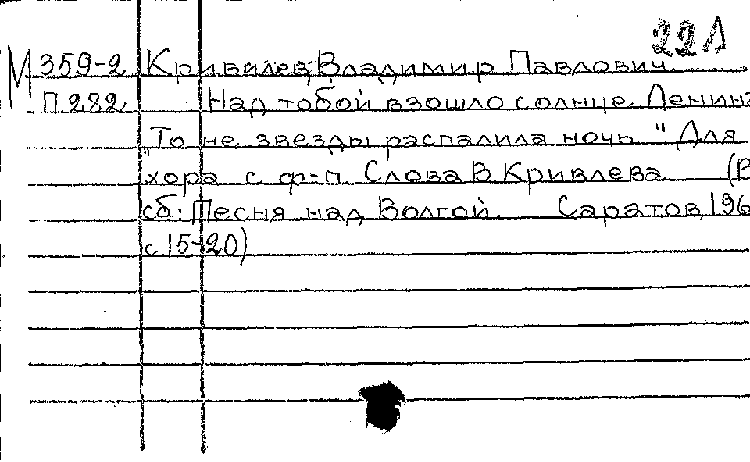 22Л
М 359-2 Кривлев, Владимир Павлович.
П 282 Над тобой взошло солнце Ленин
"То не звезды распалила ночь" Для
хора с ф-п. Слова В Кривлева. (В
сб: Песня над Волгой. Саратов, 196
с 15-20)